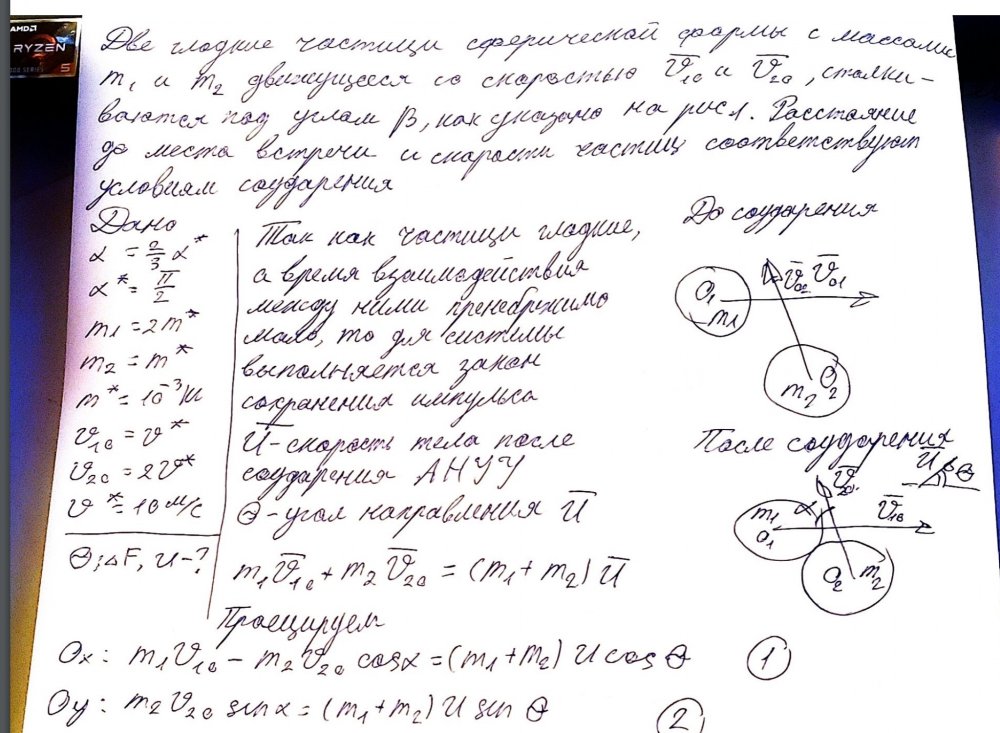 AMD
RYZEN
5
Две гладкие частицы сферической формы с массами
m₁ и m₂ движущееся со скоростью V̅₁₀ и V̅₂₀, сталки-
ваются под углом β, как указано на рис1. Расстояние
до места встречи и скорости частиц соответствуют
условиям соударения
Дано
α = 2/3 α*
α* = π/2
m₁ = 2m*
m₂ = m*
m* = 10⁻³ кг
V₁₀ = V*
V₂₀ = 2V*
V* = 10 м/с
Θ; ΔF, U-?
Так как частицы гладкие,
а время взаимодействия
между ними пренебрежимо
мало, то для системы
выполняется закон
сохранения импульса
U̅ - скорость тела после
соударения АНУУ
Θ - угол направления U̅
m₁V̅₁₀ + m₂V̅₂₀ = (m₁+m₂)U̅
До соударения
V̅₀₂ V̅₀₁
O₁
m₁
m₂ O₂
После соударения
U̅ Θ
V̅₂₀
α V̅₁₀
m₁
O₁
O₂ m₂
Проецируем
Ox: m₁V₁₀ - m₂V₂₀ cosα = (m₁+m₂) U cos Θ (1)
Oy: m₂V₂₀ sinα = (m₁+m₂) U sin Θ (2)